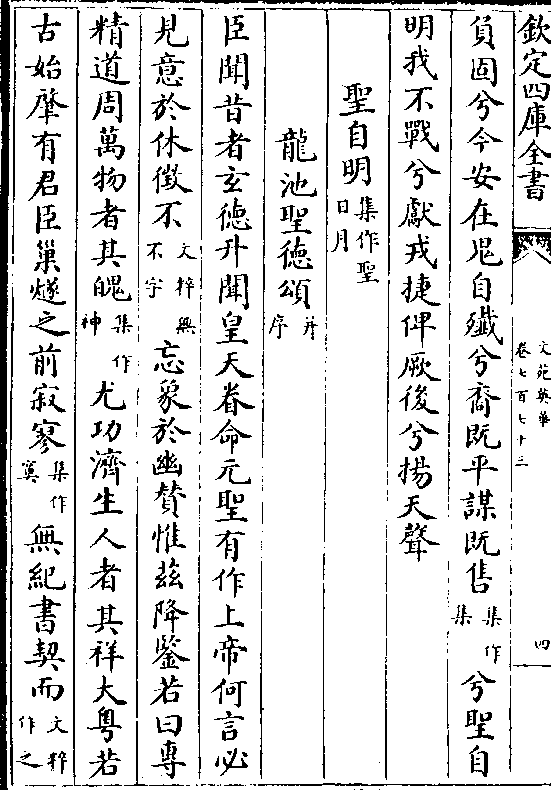 欽定四庫全書
文苑英華
卷七百七十三
四
負固兮今安在鬼自殲兮裔既平謀既售集作集兮聖自
明我不戰兮獻戎捷俾厥後兮揚天聲
聖自明集作聖日月
龍池聖德頌并序
臣聞昔者玄德升聞皇天眷命元聖有作上帝何言必
見意於休徵不文粹無不字忘象於幽贊惟茲降鑒若曰專
精道周萬物者其䰠集作神尤功濟生人者其祥大粤若
古始肇有君臣巢燧之前寂寥集作寞無紀書契而文粹作之